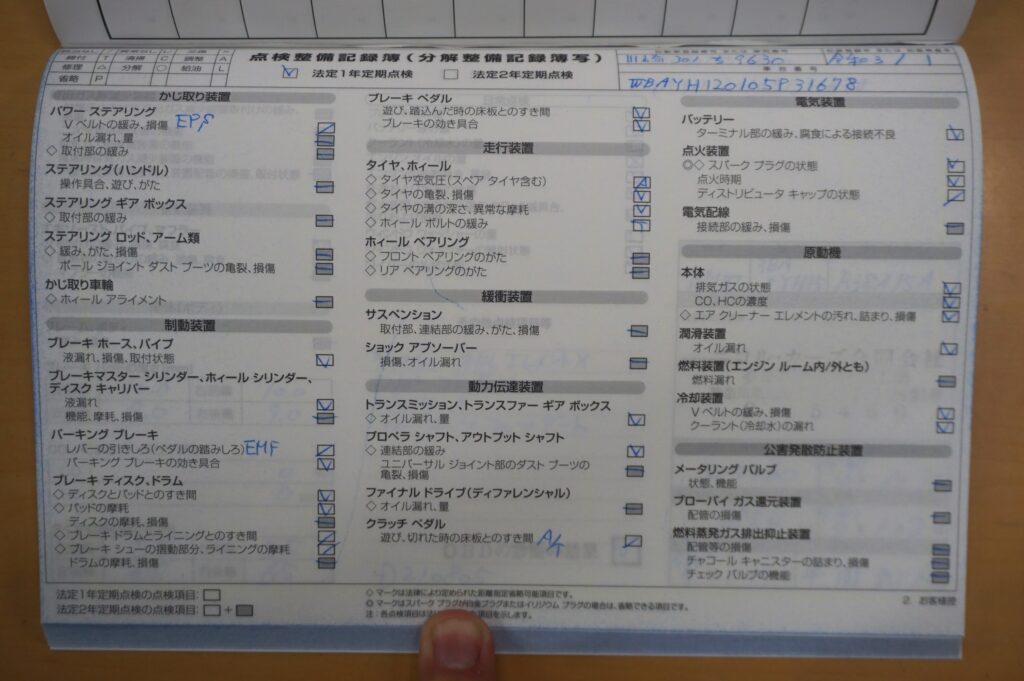 点検整備記録簿(分解整備記録簿写)
法定1年定期点検 法定2年定期点検
締付 T 清掃 C 調整 A
修理 △ 分解 ○ 給油 L
省略 P
301 9630
WBAYH120105P31678
かじ取り装置
パワー ステアリング
V ベルトの緩み、損傷 EPS
オイル漏れ、量
◇ 取付部の緩み
ステアリング(ハンドル)
操作具合、遊び、がた
ステアリング ギア ボックス
◇ 取付部の緩み
ステアリング ロッド、アーム類
◇ 緩み、がた、損傷
ボール ジョイント ダスト ブーツの亀裂、損傷
かじ取り車輪
◇ ホィール アライメント
制動装置
ブレーキ ホース、パイプ
液漏れ、損傷、取付状態
ブレーキマスター シリンダー、ホィール シリンダー、
ディスク キャリパー
液漏れ
機能、摩耗、損傷
パーキング ブレーキ
レバーの引きしろ(ペダルの踏みしろ) EMF
パーキング ブレーキの効き具合
ブレーキ ディスク、ドラム
◇ ディスクとパッドとのすき間
◇ パッドの摩耗
ディスクの摩耗、損傷
◇ ブレーキ ドラムとライニングとのすき間
◇ ブレーキ シューの摺動部分、ライニングの摩耗
ドラムの摩耗、損傷
ブレーキ ペダル
遊び、踏込んだ時の床板とのすき間
ブレーキの効き具合
走行装置
タイヤ、ホィール
◇ タイヤ空気圧(スペア タイヤ含む) A
◇ タイヤの亀裂、損傷
◇ タイヤの溝の深さ、異常な摩耗
◇ ホィール ボルトの緩み
ホィール ベアリング
◇ フロント ベアリングのがた
◇ リア ベアリングのがた
緩衝装置
サスペンション
取付部、連結部の緩み、がた、損傷
ショック アブソーバー
損傷、オイル漏れ
動力伝達装置
トランスミッション、トランスファー ギア ボックス
◇ オイル漏れ、量
プロペラ シャフト、アウトプット シャフト
◇ 連結部の緩み
ユニバーサル ジョイント部のダスト ブーツの
亀裂、損傷
ファイナル ドライブ(ディファレンシャル)
◇ オイル漏れ、量
クラッチ ペダル
遊び、切れた時の床板とのすき間 A/T
電気装置
バッテリー
ターミナル部の緩み、腐食による接続不良
点火装置
◎◇ スパーク プラグの状態
点火時期
ディストリビュータ キャップの状態
電気配線
接続部の緩み、損傷
原動機
本体
排気ガスの状態
CO、HCの濃度
◇ エア クリーナー エレメントの汚れ、詰まり、損傷
潤滑装置
オイル漏れ
燃料装置(エンジン ルーム内/外とも)
燃料漏れ
冷却装置
V ベルトの緩み、損傷
クーラント(冷却水)の漏れ
公害発散防止装置
メータリング バルブ
状態、機能
ブローバイ ガス還元装置
配管の損傷
燃料蒸発ガス排出抑止装置
配管等の損傷
チャコール キャニスターの詰まり、損傷
チェック バルブの機能
法定1年定期点検の点検項目:
法定2年定期点検の点検項目: +
◇ マークは法律により定められた距離指定省略可能項目です。
◎ マークはスパーク プラグが白金プラグまたはイリジウム プラグの場合は、省略できる項目です。
2. お客様控